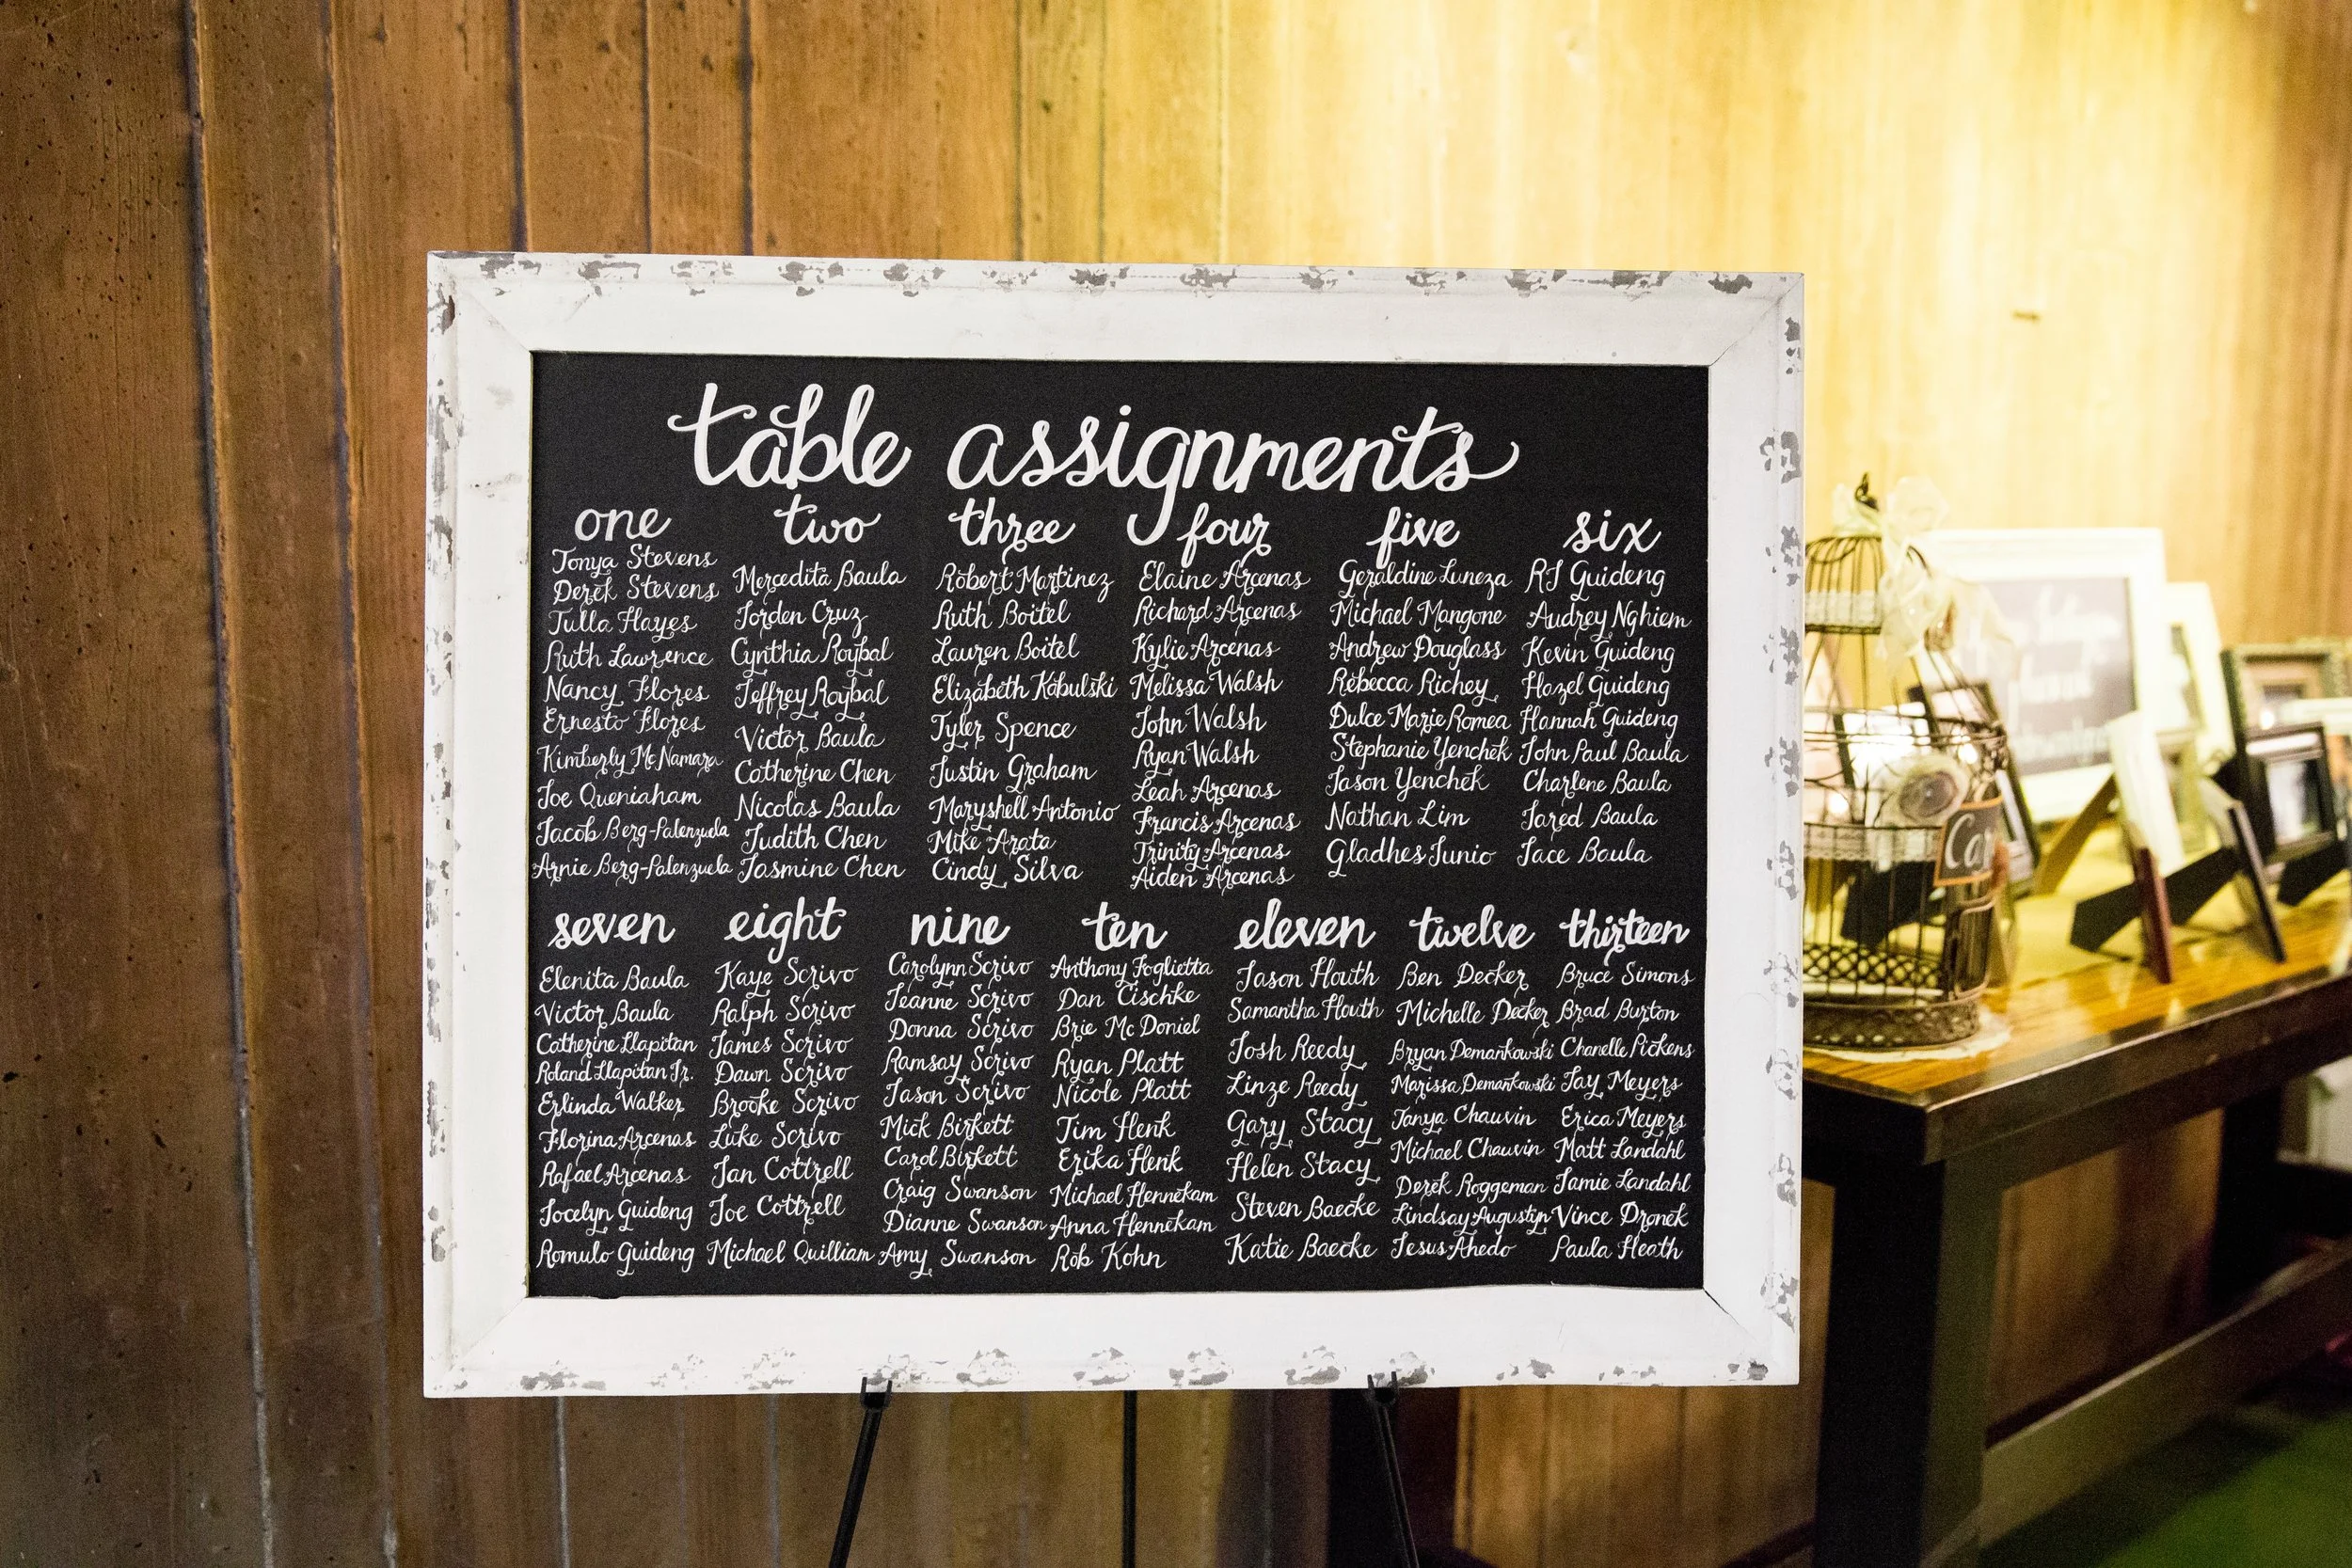 table assignments
one
Tonya Stevens
Derek Stevens
Tulla Hayes
Ruth Lawrence
Nancy Flores
Ernesto Flores
Kimberly McNamara
Joe Queniaham
Jacob Berg-Palenzuela
Arnie Berg-Palenzuela
two
Mercedita Baula
Jorden Cruz
Cynthia Roybal
Jeffrey Roybal
Victor Baula
Catherine Chen
Nicolas Baula
Judith Chen
Jasmine Chen
three
Robert Martinez
Ruth Boitel
Lauren Boitel
Elizabeth Kobulski
Tyler Spence
Justin Graham
Maryshell Antonio
Mike Arata
Cindy Silva
four
Elaine Arcenas
Richard Arcenas
Kylie Arcenas
Melissa Walsh
John Walsh
Ryan Walsh
Leah Arcenas
Francis Arcenas
Trinity Arcenas
Aiden Arcenas
five
Geraldine Luneza
Michael Mangone
Andrew Douglass
Rebecca Richey
Dulce Marie Romea
Stephanie Yenchek
Jason Yenchek
Nathan Lim
Gladhes Junio
six
RJ Guideng
Audrey Nghiem
Kevin Guideng
Hazel Guideng
Hannah Guideng
John Paul Baula
Charlene Baula
Jared Baula
Jace Baula
seven
Elenita Baula
Victor Baula
Catherine Llapitan
Roland Llapitan Jr.
Erlinda Walker
Florina Arcenas
Rafael Arcenas
Jocelyn Guideng
Romulo Guideng
eight
Kaye Scrivo
Ralph Scrivo
James Scrivo
Dawn Scrivo
Brooke Scrivo
Luke Scrivo
Jan Cottrell
Joe Cottrell
Michael Quilliam
nine
Carolynn Scrivo
Jeanne Scrivo
Donna Scrivo
Ramsay Scrivo
Jason Scrivo
Mick Birkett
Carol Birkett
Craig Swanson
Dianne Swanson
Amy Swanson
ten
Anthony Foglietta
Dan Cischke
Brie McDaniel
Ryan Platt
Nicole Platt
Tim Henk
Erika Henk
Michael Hennekam
Anna Hennekam
Rob Kohn
eleven
Jason Houth
Samantha Houth
Josh Reedy
Linze Reedy
Gary Stacy
Helen Stacy
Steven Baecke
Katie Baecke
twelve
Ben Decker
Michelle Decker
Bryan Demankowski
Marissa Demankowski
Tanya Chauvin
Michael Chauvin
Derek Roggeman
Lindsay Augustyn
Jesus Ahedo
thirteen
Bruce Simons
Brad Burton
Chanelle Pickens
Jay Meyers
Erica Meyers
Matt Landahl
Jamie Landahl
Vince Dronek
Paula Heath